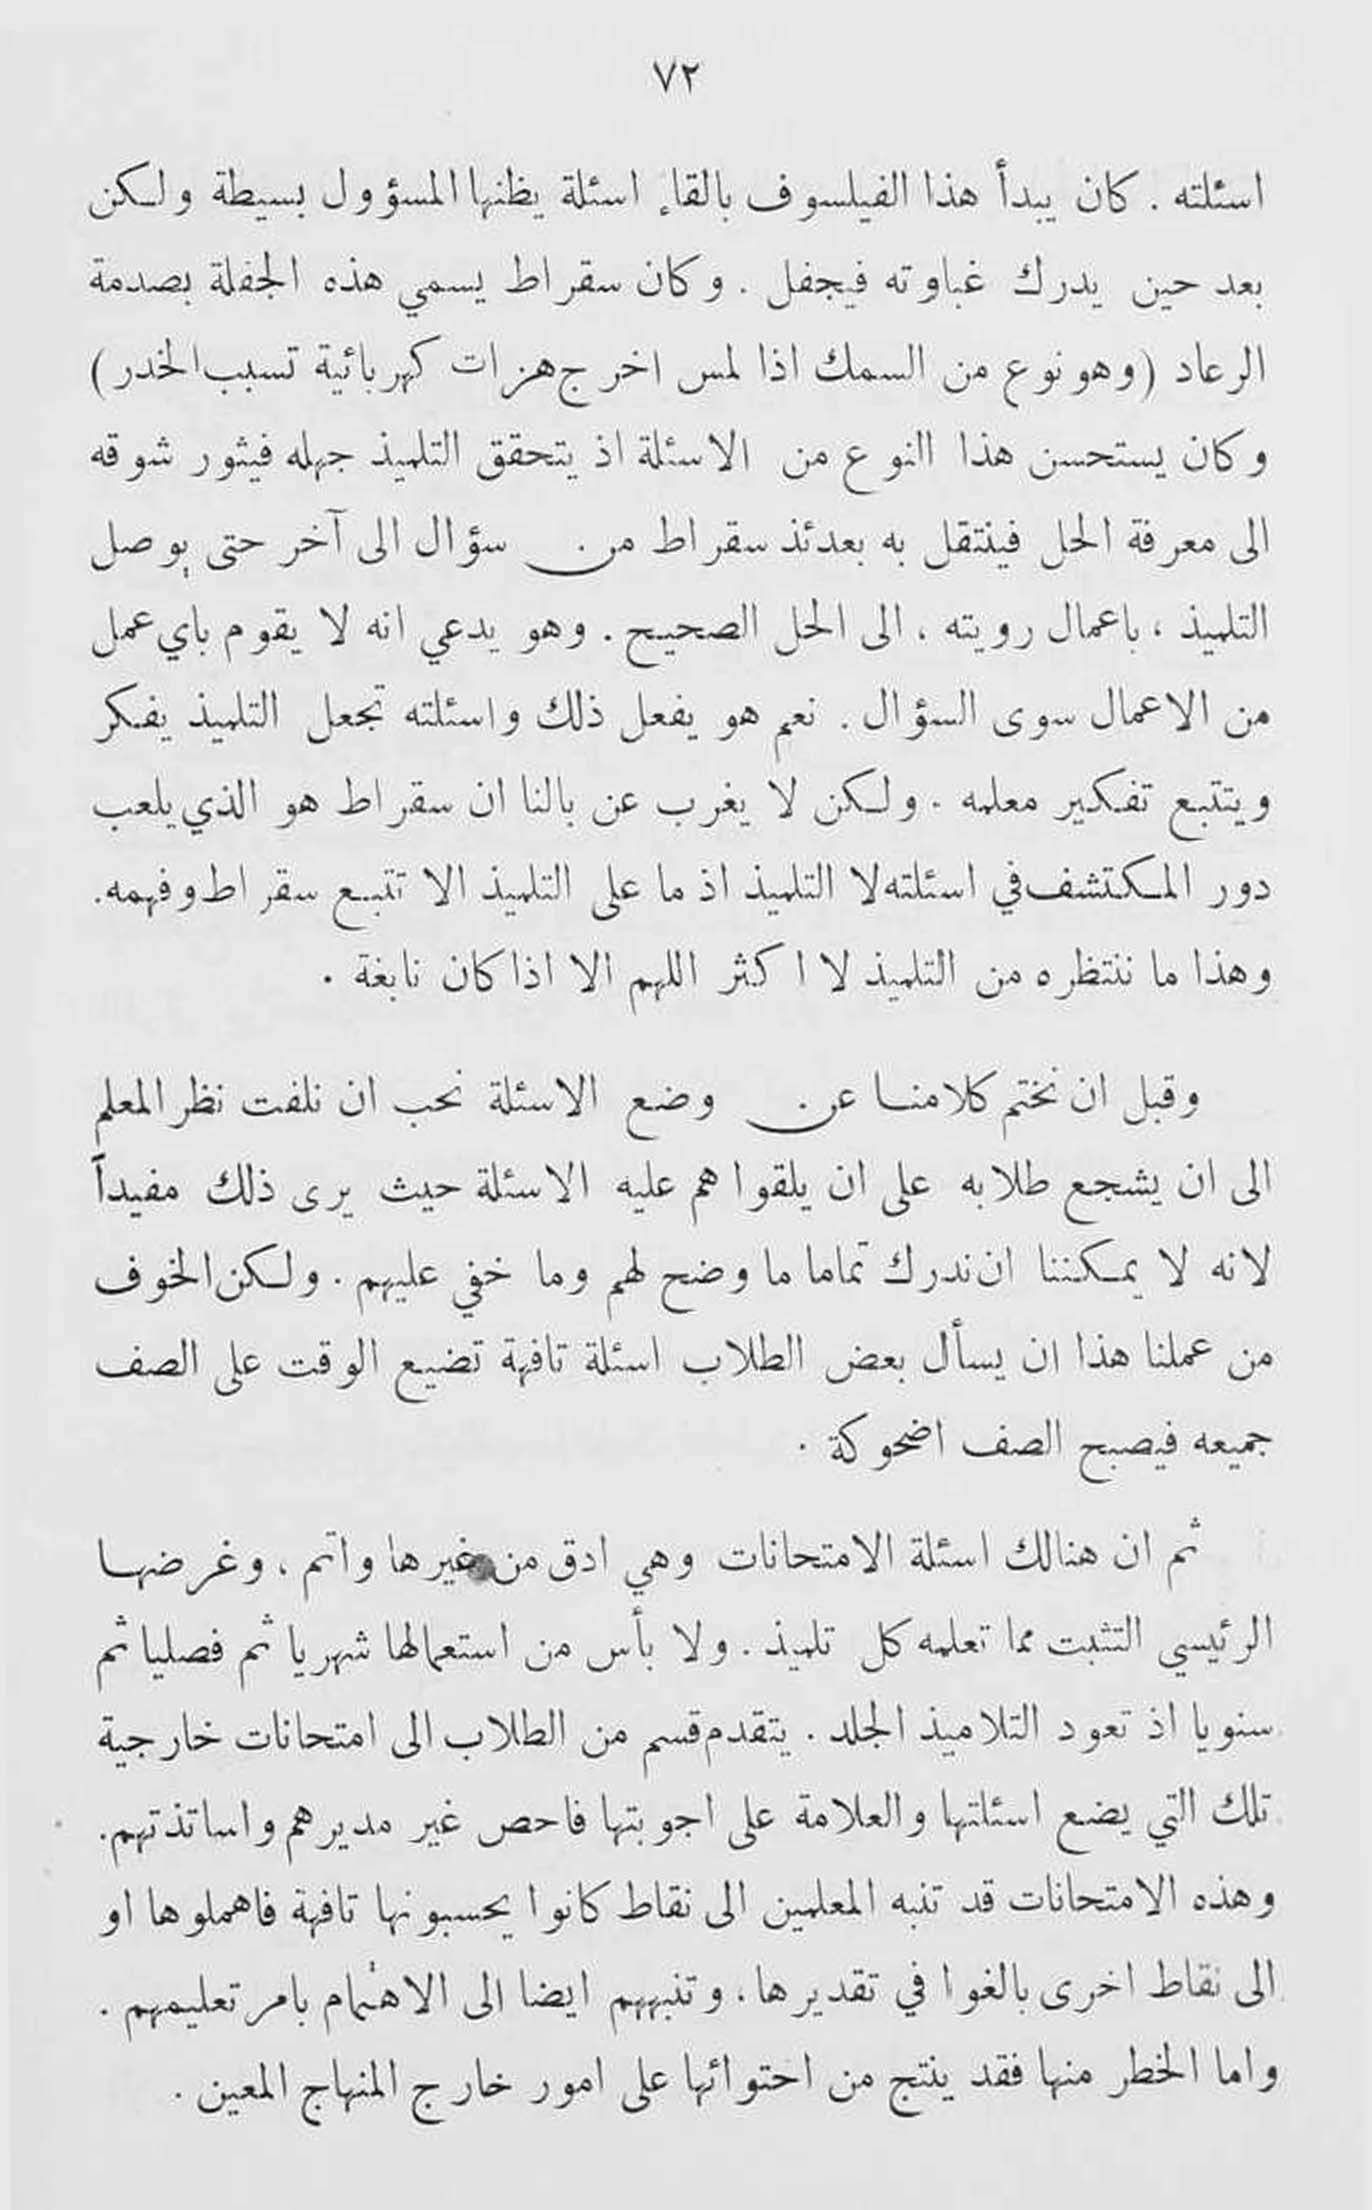 ٧٢
اسئلته . كان يبدأ هذا الفيلسوف بالقاء اسئلة يظنها المسؤول بسيطة ولكن
بعد حين يدرك غباوته فيجفل . وكان سقراط يسمي هذه الجفلة بصدمة
الرعاد (وهو نوع من السمك اذا لمس اخرج هزات كهربائية تسبب الخدر)
وكان يستحسن هذا النوع من الاسئلة اذ يتحقق التلميذ جهله فيثور شوقه
الى معرفة الحل فينتقل به بعدئذ سقراط من سؤال الى آخر حتى يوصل
التلميذ ، باعمال رويته ، الى الحل الصحيح . وهو يدعي انه لا يقوم باي عمل
من الاعمال سوى السؤال . نعم هو يفعل ذلك واسئلته تجعل التلميذ يفكر
ويتتبع تفكير معلمه . ولكن لا يغرب عن بالنا ان سقراط هو الذي يلعب
دور المكتشف في اسئلته لا التلميذ اذ ما على التلميذ الا تتبع سقراط وفهمه.
وهذا ما ننتظره من التلميذ لا اكثر اللهم الا اذا كان نابغة .
وقبل ان نختم كلامنا عن وضع الاسئلة نحب ان نلفت نظر المعلم
الى ان يشجع طلابه على ان يلقوا هم عليه الاسئلة حيث يرى ذلك مفيداً
لانه لا يمكننا ان ندرك تماما ما وضح لهم وما خفي عليهم . ولكن الخوف
من عملنا هذا ان يسأل بعض الطلاب اسئلة تافهة تضيع الوقت على الصف
جميعه فيصبح الصف اضحوكة .
ثم ان هنالك اسئلة الامتحانات وهي ادق من غيرها واتم ، وغرضها
الرئيسي التثبت مما تعلمه كل تلميذ . ولا بأس من استعمالها شهريا ثم فصليا ثم
سنويا اذ تعود التلاميذ الجلد . يتقدم قسم من الطلاب الى امتحانات خارجية
تلك التي يضع اسئلتها والعلامة على اجوبتها فاحص غير مديرهم واساتذتهم.
وهذه الامتحانات قد تنبه المعلمين الى نقاط كانوا يحسبونها تافهة فاهملوها او
الى نقاط اخرى بالغوا في تقديرها ، وتنبههم ايضا الى الاهتمام بامر تعليمهم .
واما الخطر منها فقد ينتج من احتوائها على امور خارج المنهاج المعين .